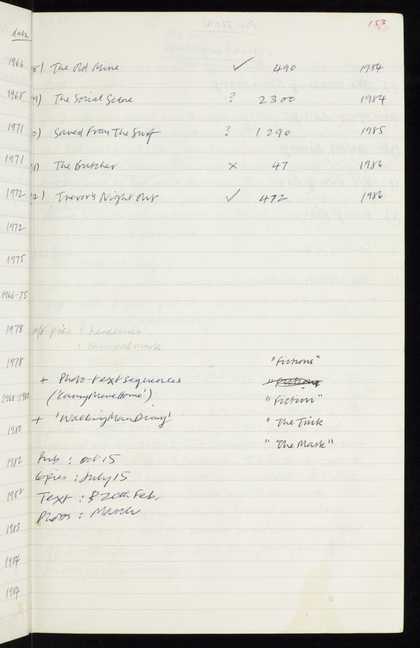 153
date
1966 8) The Old Mine ✓ 490 1984
1968 The Social Scene ? 2300 1984
1971 Saved From The Surf ? 1290 1985
1971 The Butcher x 47 1986
1972 Trevor's Night Out ✓ 472 1986
1972
1975
1966-75
1978
1978 "Fictions"
+ Photo-text sequences
"Fiction"
+ 'Walking Man Diary' "The Trick
1980
" The Mask"
1982 Pub : Oct 15
: July 15
1982 Text : 20th Feb.
Photos : March
1983
1984
1984